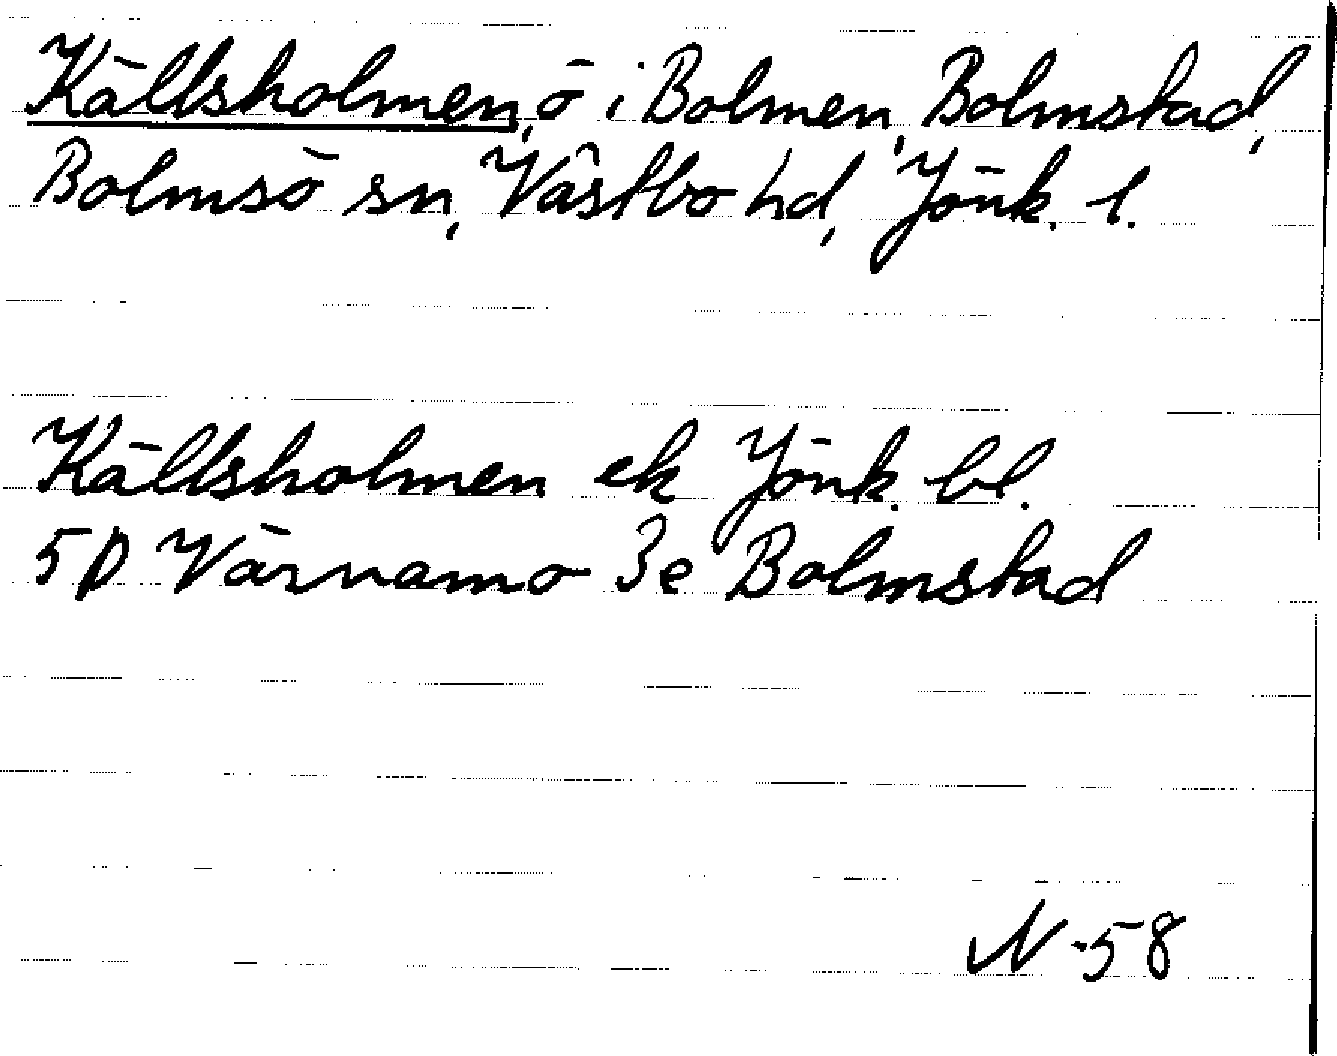 Källsholmen, ö i Bolmen, Bolmstad,
Bolmsö sn, Västbo hd, Jönk. l.
Källsholmen ek Jönk. bl.
5D Värnamo 3e Bolmstad
N-58